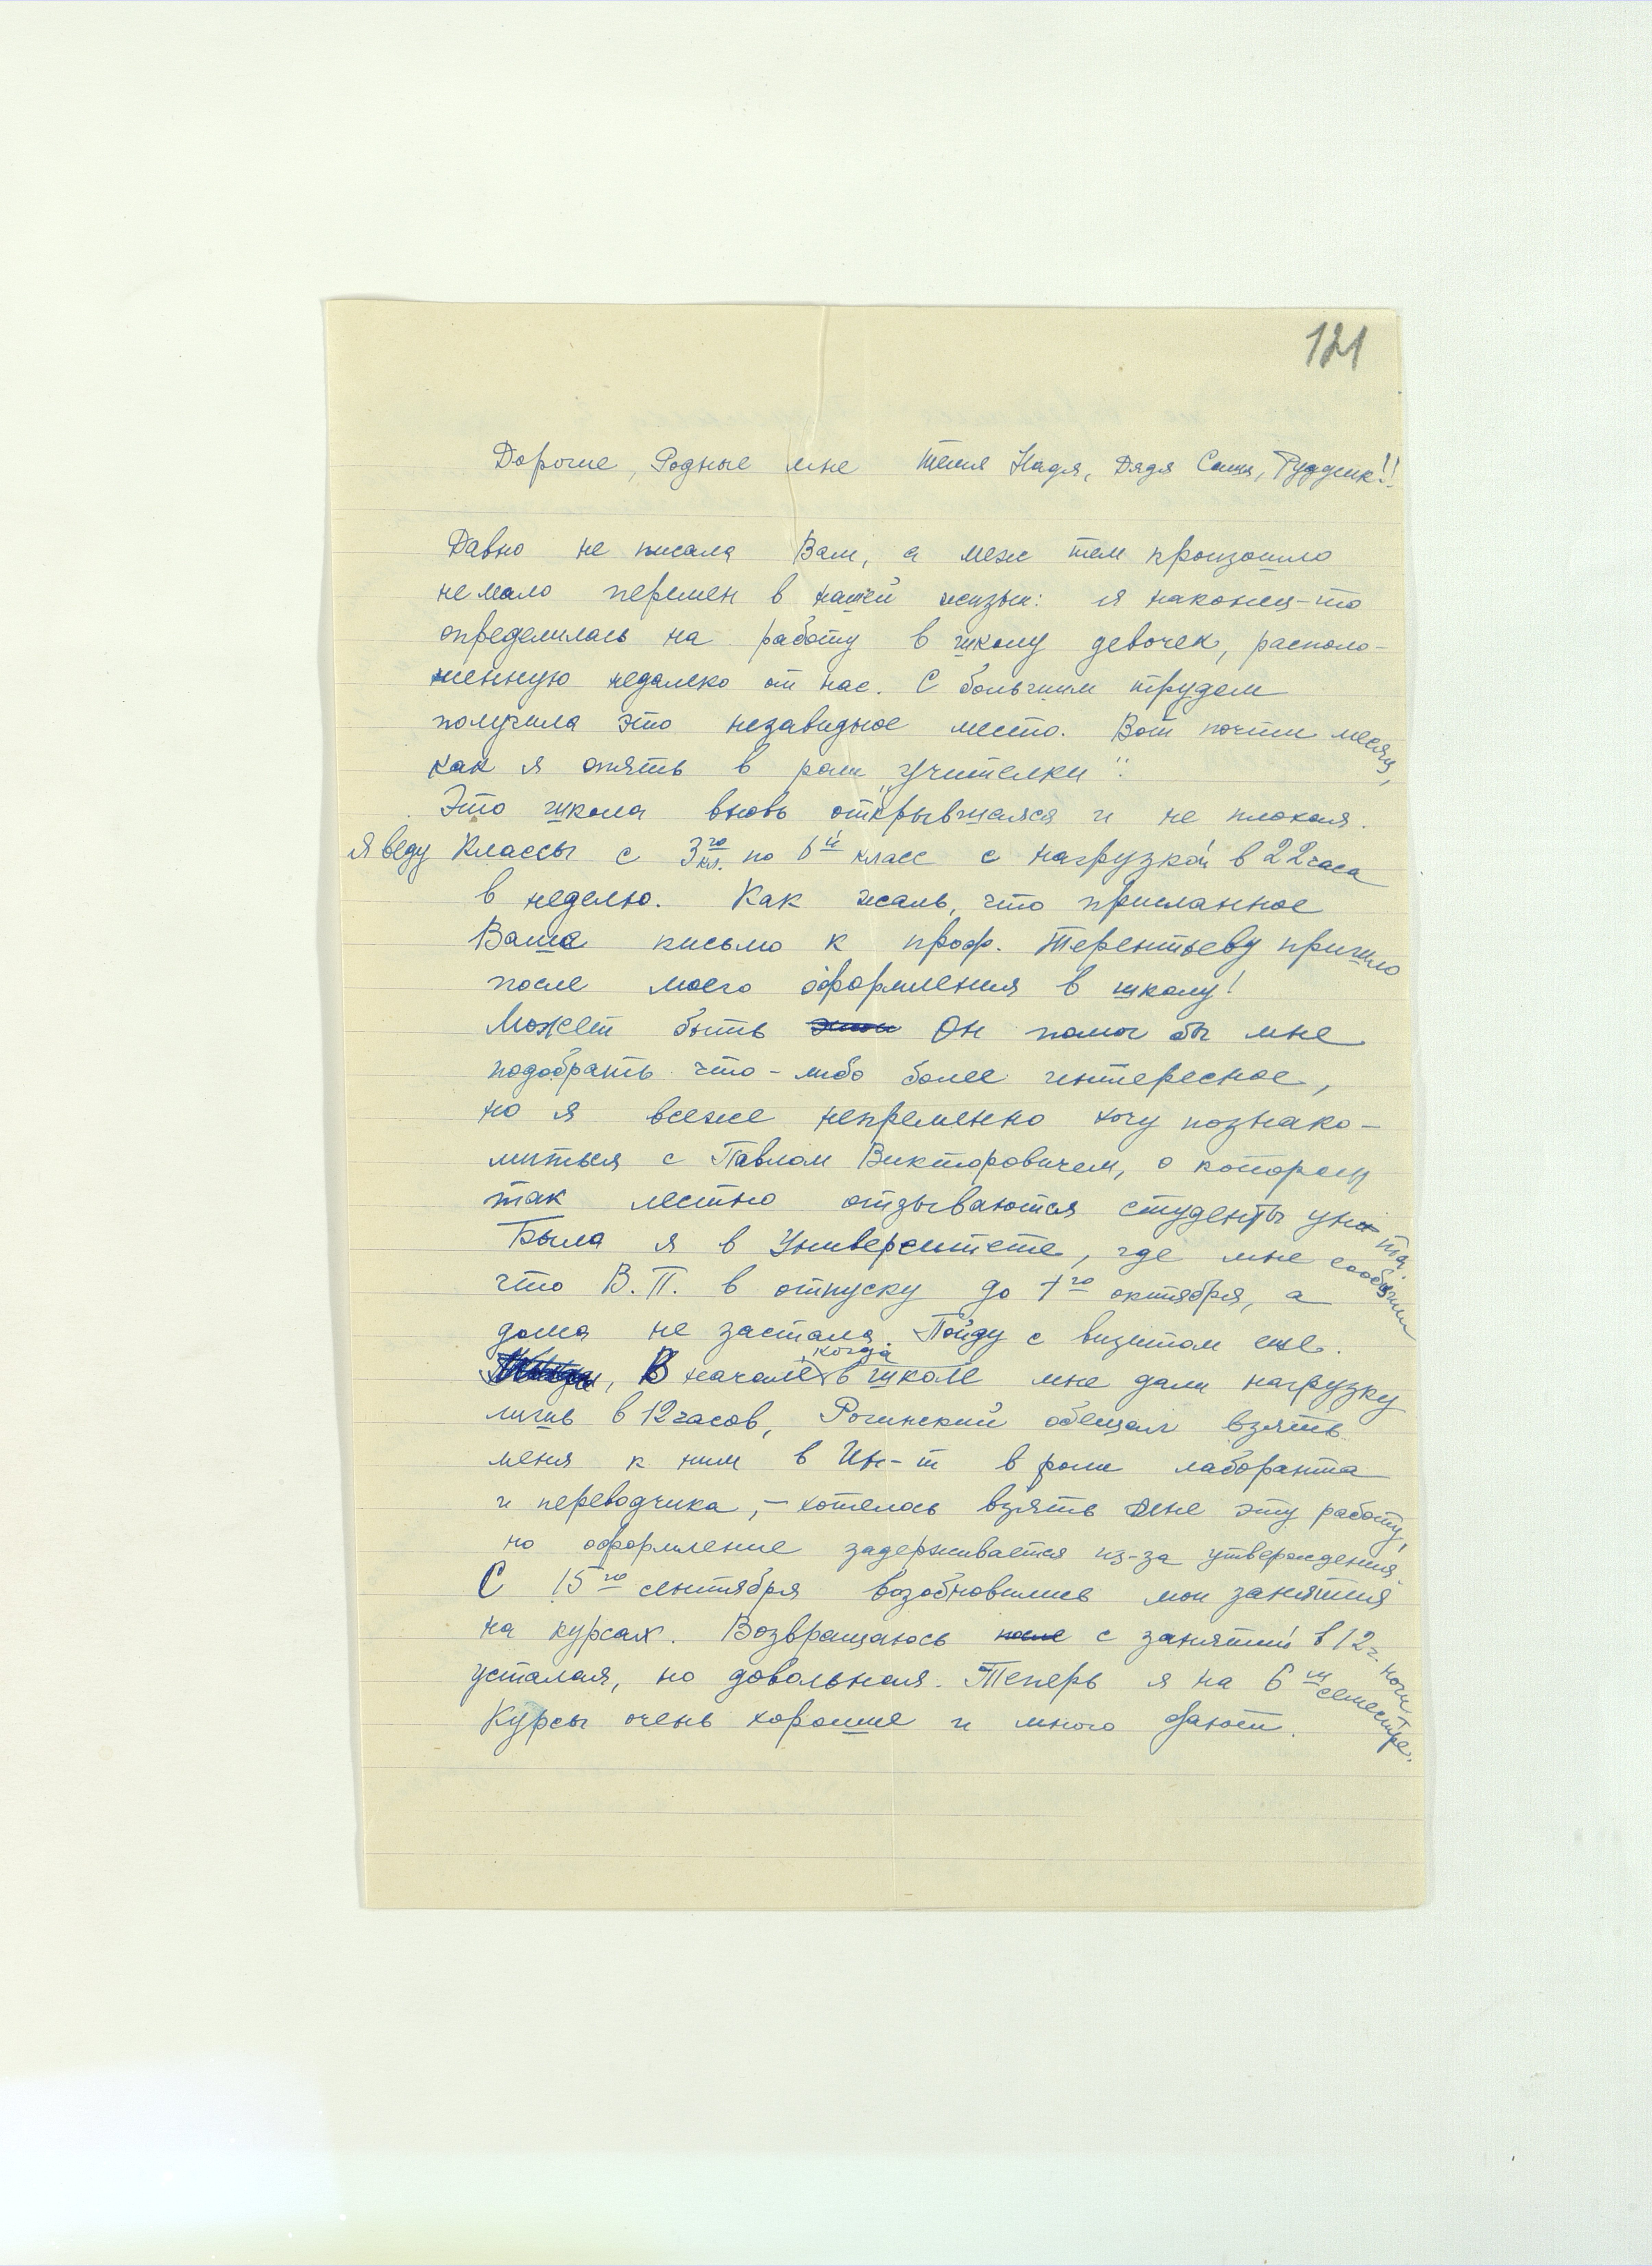 121
Дорогие, Родные мне тетя Надя, Дядя Саша, Рудик!!
Давно не писала Вам, а меж тем произошло
не мало перемен в нашей жизни: я наконец-то
определилась на работу в школу девочек, располо-
женную недалеко от нас. С большим трудом
получила это незавидное место. Вот почти месяц,
как я опять в роли „учителки".
Это школа вновь открывшаяся и не плохая.
Я веду Классы с 3го кл. по 6й класс с нагрузкой в 22 часа
в неделю. Как жаль, что присланное
Ваше письмо к проф. Терентьеву пришло
после моего оформления в школу!
Может быть Он помог бы мне
подобрать что-либо более интересное,
но я всеже непременно хочу познако-
миться с Павлом Викторовичем, о котором
так лестно отзываются студенты ун-та.
Была я в Университете, где мне сообщили
что В.П. в отпуску до 1го октября, а
дома не застала. Пойду с визитом еще.
В начале, когда в школе мне дали нагрузку
лишь в 12 часов, Рогинский обещал взять
меня к ним в Ин-т в роли лаборанта
и переводчика, – хотелось взять мне эту работу,
но оформление задерживается из-за утверждения.
С 15го сентября возобновились мои занятия
на курсах. Возвращаюсь после с занятий в 12 ч. ночи
усталая, но довольная. Теперь я на 6м семестре.
Курсы очень хорошие и много дают.